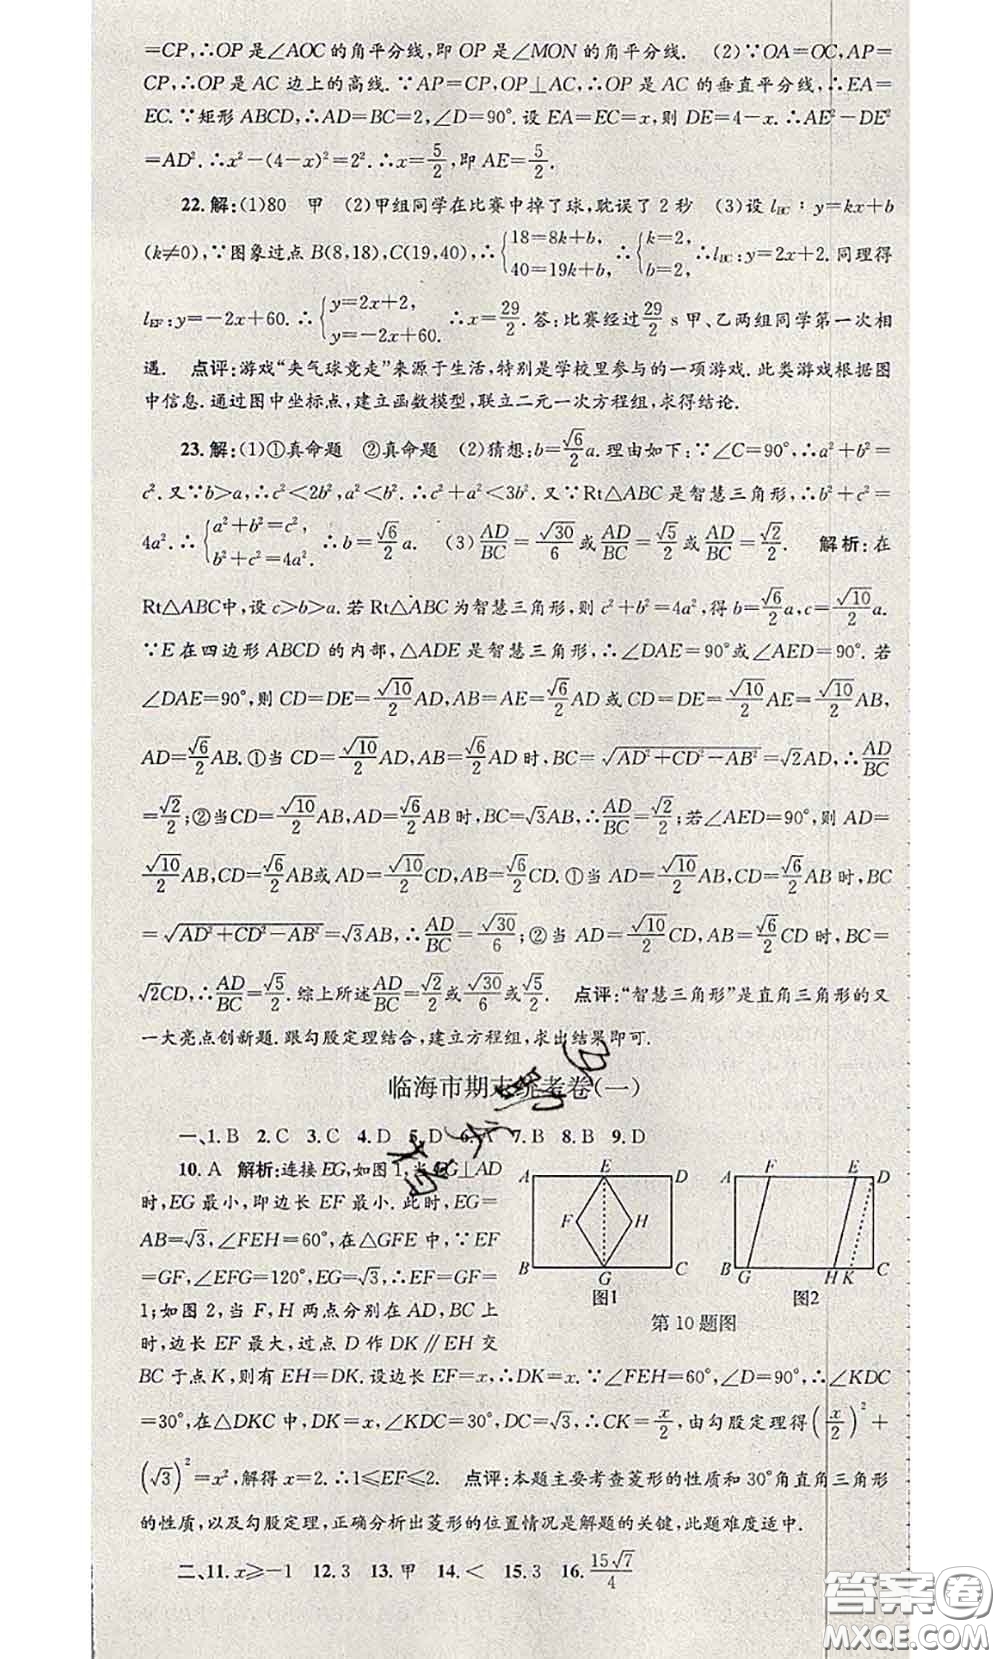 =CP,∴OP是∠AOC的角平分线,即OP是∠MON的角平分线. (2)∵OA=OC,AP=
CP,∴OP是AC边上的高线.∵AP=CP,OP⊥AC,∴OP是AC的垂直平分线,∴EA=
EC.∵矩形ABCD,∴AD=BC=2,∠D=90°.设EA=EC=x,则DE=4-x.∴AE²-DE²
=AD².∴x²-(4-x)²=2².∴x=5/2,即AE=5/2.
22.解:(1)80 甲 (2)甲组同学在比赛中掉了球,耽误了2秒 (3)设l_BC:y=kx+b
(k≠0),∵图象过点B(8,18),C(19,40),∴{18=8k+b, 40=19k+b,∴{k=2, b=2.∴l_BC:y=2x+2.同理得
l_EF:y=-2x+60.∴{y=2x+2, y=-2x+60.∴x=29/2.答:比赛经过29/2 s甲、乙两组同学第一次相
遇. 点评:游戏“夹气球竞走”来源于生活,特别是学校里参与的一项游戏.此类游戏根据图
中信息.通过图中坐标点,建立函数模型,联立二元一次方程组,求得结论.
23.解:(1)①真命题 ②真命题 (2)猜想:b=√6/2a.理由如下:∵∠C=90°,∴a²+b²=
c².又∵b>a,∴c²<2b²,a²<b².∴c²+a²<3b².又∵Rt△ABC是智慧三角形,∴b²+c²=
4a².∴{a²+b²=c², b²+c²=4a².∴b=√6/2a. (3)AD/BC=√30/6或AD/BC=√5/2或AD/BC=√2/2. 解析:在
Rt△ABC中,设c>b>a.若Rt△ABC为智慧三角形,则c²+b²=4a²,得b=√6/2a,c=√10/2a.
∵E在四边形ABCD的内部,△ADE是智慧三角形,∴∠DAE=90°或∠AED=90°.若
∠DAE=90°,则CD=DE=√10/2AD,AB=AE=√6/2AD或CD=DE=√10/2AE=√10/2AB,
AD=√6/2AB.①当CD=√10/2AD,AB=√6/2AD时,BC=√(AD²+CD²-AB²)=√2AD,∴AD/BC
=√2/2;②当CD=√10/2AB,AD=√6/2AB时,BC=√3AB,∴AD/BC=√2/2;若∠AED=90°,则AD=
√10/2AB,CD=√6/2AB或AD=√10/2CD,AB=√6/2CD.①当AD=√10/2AB,CD=√6/2AB时,BC
=√(AD²+CD²-AB²)=√3AB,∴AD/BC=√30/6;②当AD=√10/2CD,AB=√6/2CD时,BC=
√2CD,∴AD/BC=√5/2.综上所述AD/BC=√2/2或√30/6或√5/2. 点评:“智慧三角形”是直角三角形的又
一大亮点创新题.跟勾股定理结合,建立方程组,求出结果即可.
临海市期末统考卷(一)
一、1.B 2.C 3.C 4.D 5.D 6.A 7.B 8.B 9.D
10.A 解析:连接EG,如图1,当EG⊥AD
时,EG最小,即边长EF最小.此时,EG=
AB=√3,∠FEH=60°,在△GFE中,∵EF
=GF,∠EFG=120°,EG=√3,∴EF=GF=
1;如图2,当F,H两点分别在AD,BC上
时,边长EF最大,过点D作DK∥EH交
A E D
F H
B G C
图1
A F E D
B G H K C
图2
第10题图
BC于点K,则有EH=DK.设边长EF=x,∴DK=x.∵∠FEH=60°,∠D=90°,∴∠KDC
=30°,在△DKC中,DK=x,∠KDC=30°,DC=√3,∴CK=x/2,由勾股定理得(x/2)²+
(√3)²=x²,解得x=2.∴1≤EF≤2. 点评:本题主要考查菱形的性质和30°角直角三角形
的性质,以及勾股定理,正确分析出菱形的位置情况是解题的关键,此题难度适中.
二、11.x≥-1 12.3 13.甲 14.< 15.3 16.15√7/4
答案圈
MXQE.COM